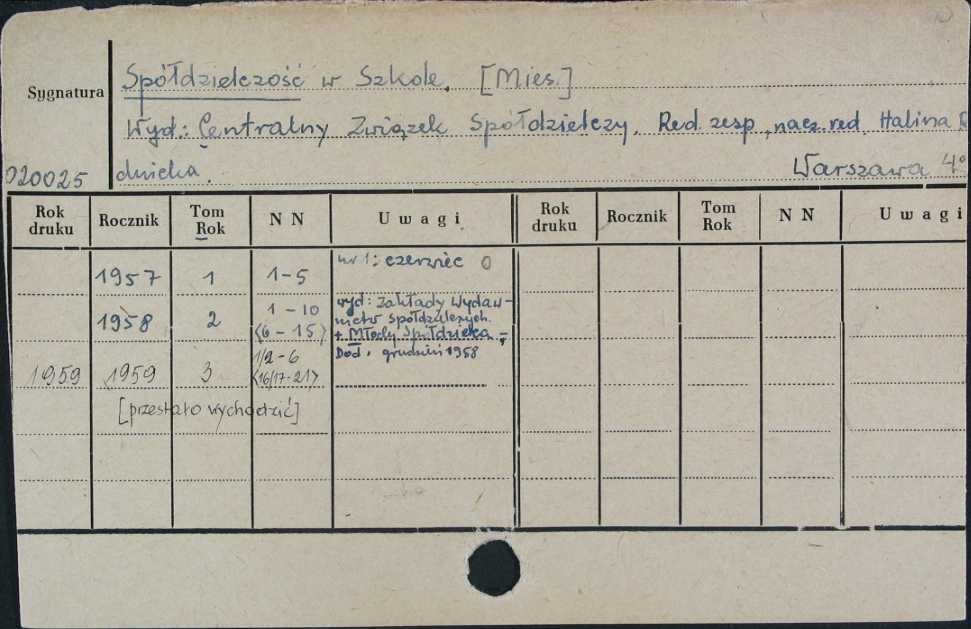 Spółdzielczość w Szkole. [Mies.]
Sygnatura
Wyd.: Centralny Związek Spółdzielczy. Red. zesp., nacz. red. Halina
dnicka.
Warszawa 4°
020025
Rok druku Rocznik Tom Rok NN Uwagi Rok druku Rocznik Tom Rok NN Uwagi
1957 1 1-5 nr 1: czerwiec 0
1958 2 1-10 <6-15> wyd: Zakłady Wydaw-
nictw Spółdzielczych.
+ Młody Spółdzielca =
Dod. grudzień 1958
1959 1959 3 1/2-6 <16/17-21>
[przestało wychodzić]